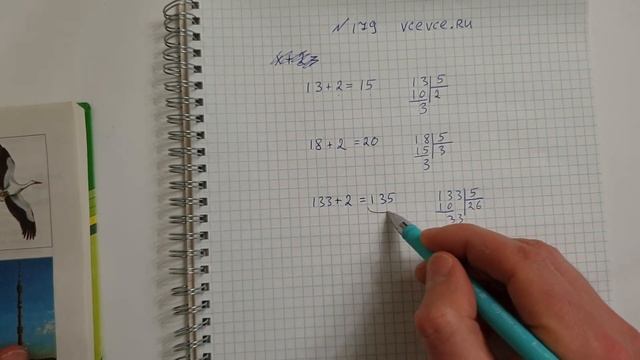 № 179 vcevce.ru
13 + 2 = 15
13 5
10 2
3
18 + 2 = 20
18 5
15 3
3
133 + 2 = 135
133 5
10 26
33